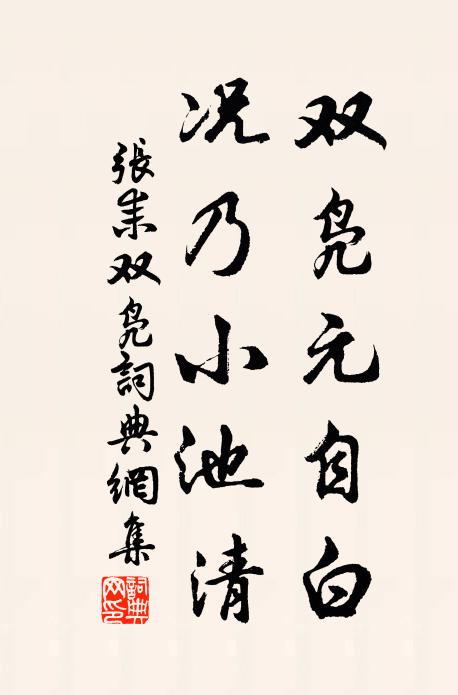 双凫元自白
况乃小池清
張耒双凫詞典網集
詞典网印